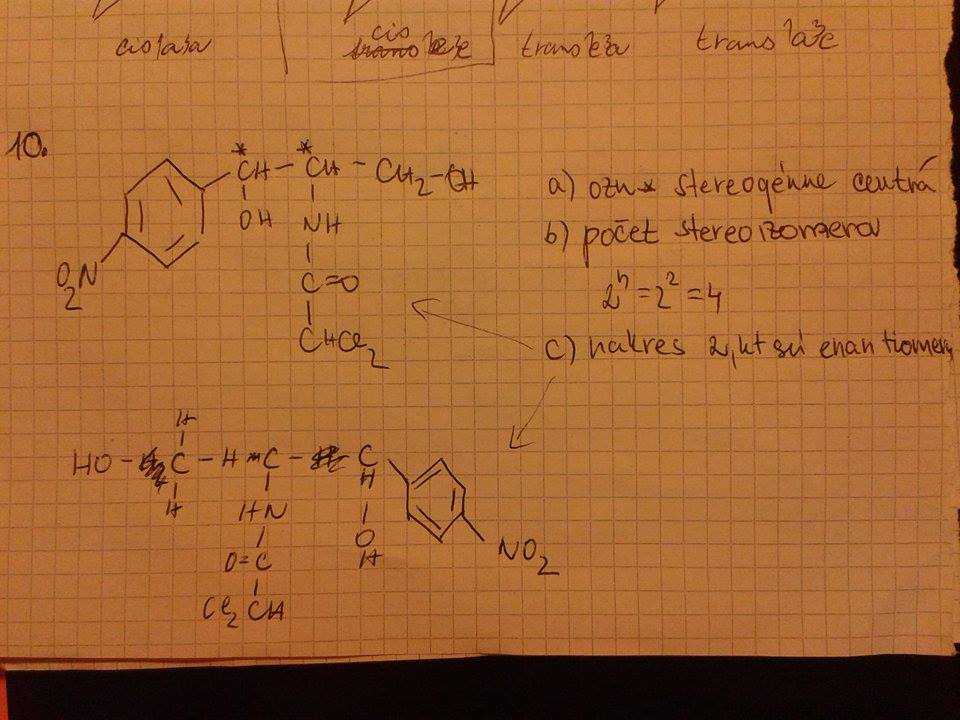 cis laža
cis
trans leža
trans laže
10.
* *
CH - CH - CH2-OH
OH NH
O2N
C=O
CHCl2
a) ozn * stereogénne centrá
b) počet stereoizomerov
2^n = 2^2 = 4
c) nakres 2, kt sú enantiomery
H
HO - C - H - C - C
H HN H
O=C O
H
Cl2 CH
NO2